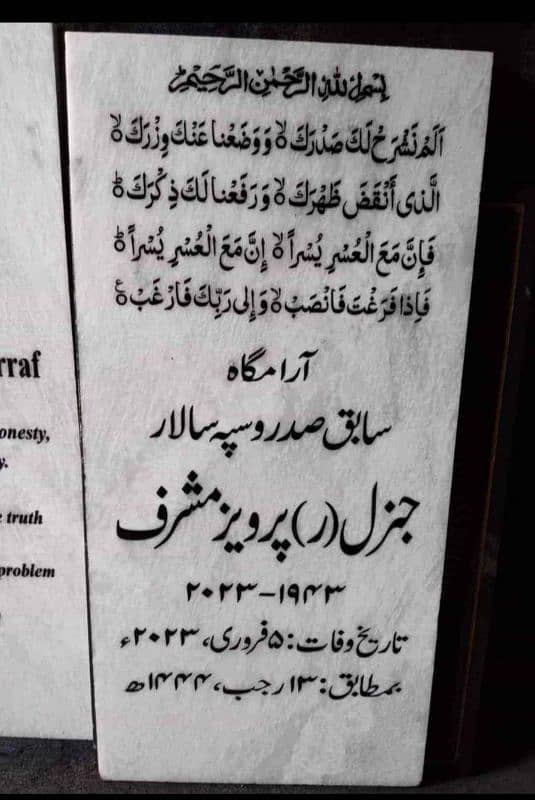 بِسْمِ اللّٰهِ الرَّحْمٰنِ الرَّحِيْمِ
اَلَمْ نَشْرَحْ لَكَ صَدْرَكَ ۙ وَوَضَعْنَا عَنْكَ وِزْرَكَ ۙ
الَّذِى أَنْقَضَ ظَهْرَكَ ۙ وَرَفَعْنَا لَكَ ذِكْرَكَ ؕ
فَاِنَّ مَعَ الْعُسْرِ يُسْراً ۙ اِنَّ مَعَ الْعُسْرِ يُسْراً ؕ
فَاِذَا فَرَغْتَ فَانْصَبْ ۙ وَاِلٰى رَبِّكَ فَارْغَبْ ۠
آرامگاہ
سابق صدر و سپہ سالار
جنرل (ر) پرویز مشرف
۱۹۴۳-۲۰۲۳
تاریخ وفات: ۵ فروری، ۲۰۲۳ء
بمطابق: ۱۳ رجب، ۱۴۴۴ھ
rraf
onesty,
y.
truth
problem